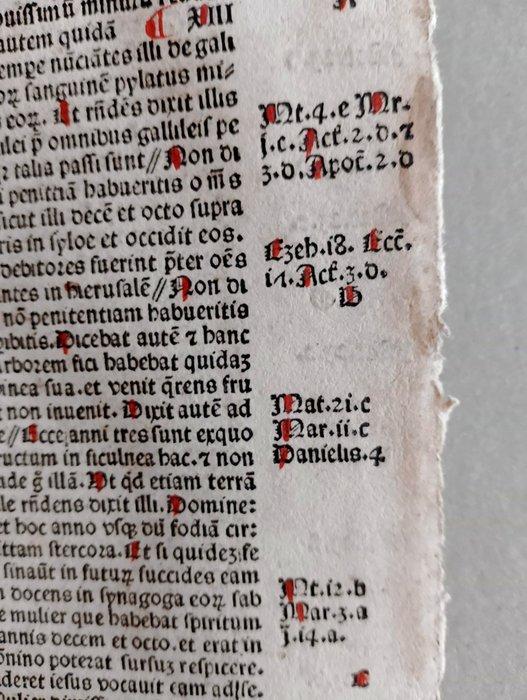 ouissimū minutū
autem quidā ¶ XIII
empe nūciātes illi de gali
oꝝ sanguinē pylatus mi⸗
eoꝝ. Et rñdēs dixit illis
ilei p̄ omnibus galileis pe
talia passi sunt // Non di
penitētiā habueritis o m̄s
sicut illi decē et octo supra
ris in syloe et occidit eos.
debitores fuerint p̄ter oēs
ntes in hierusalē // Non di
nō penitentiam habueritis
ibitis. Dicebat autē ⁊ hanc
rborem fici habebat quidaꝫ
inea sua. et venit q̄rens fru
non inuenit. Dixit autē ad
e // Ecce anni tres sunt exquo
ructum in ficulnea hac. ⁊ non
ide g̊ illā. Ut qd etiam terrā
lle rñdens dixit illi. Domine:
et hoc anno vsqꝫ dū fodiā cir:
ittam stercora. Et si quideꝫ fe
sinaūt in futuꝝ succides eam
docens in synagoga eoꝝ sab
e mulier que habebat spiritum
annis decem et octo. et erat in
nino poterat sursuꝫ respicere.
ideret iesus vocauit eam ad se.
Mt.4.e Mr.
j.c. Act̄.2.d.⁊
3.d. Apoc̄.2.d
Ezeh.i8. Ecc̄.
i7. Act̄.3.d.
B
Mat.2i.c
Mar.ii.c
Danielis.4
Mt.i2.b
Mar.3.a
j.i4.a.
C